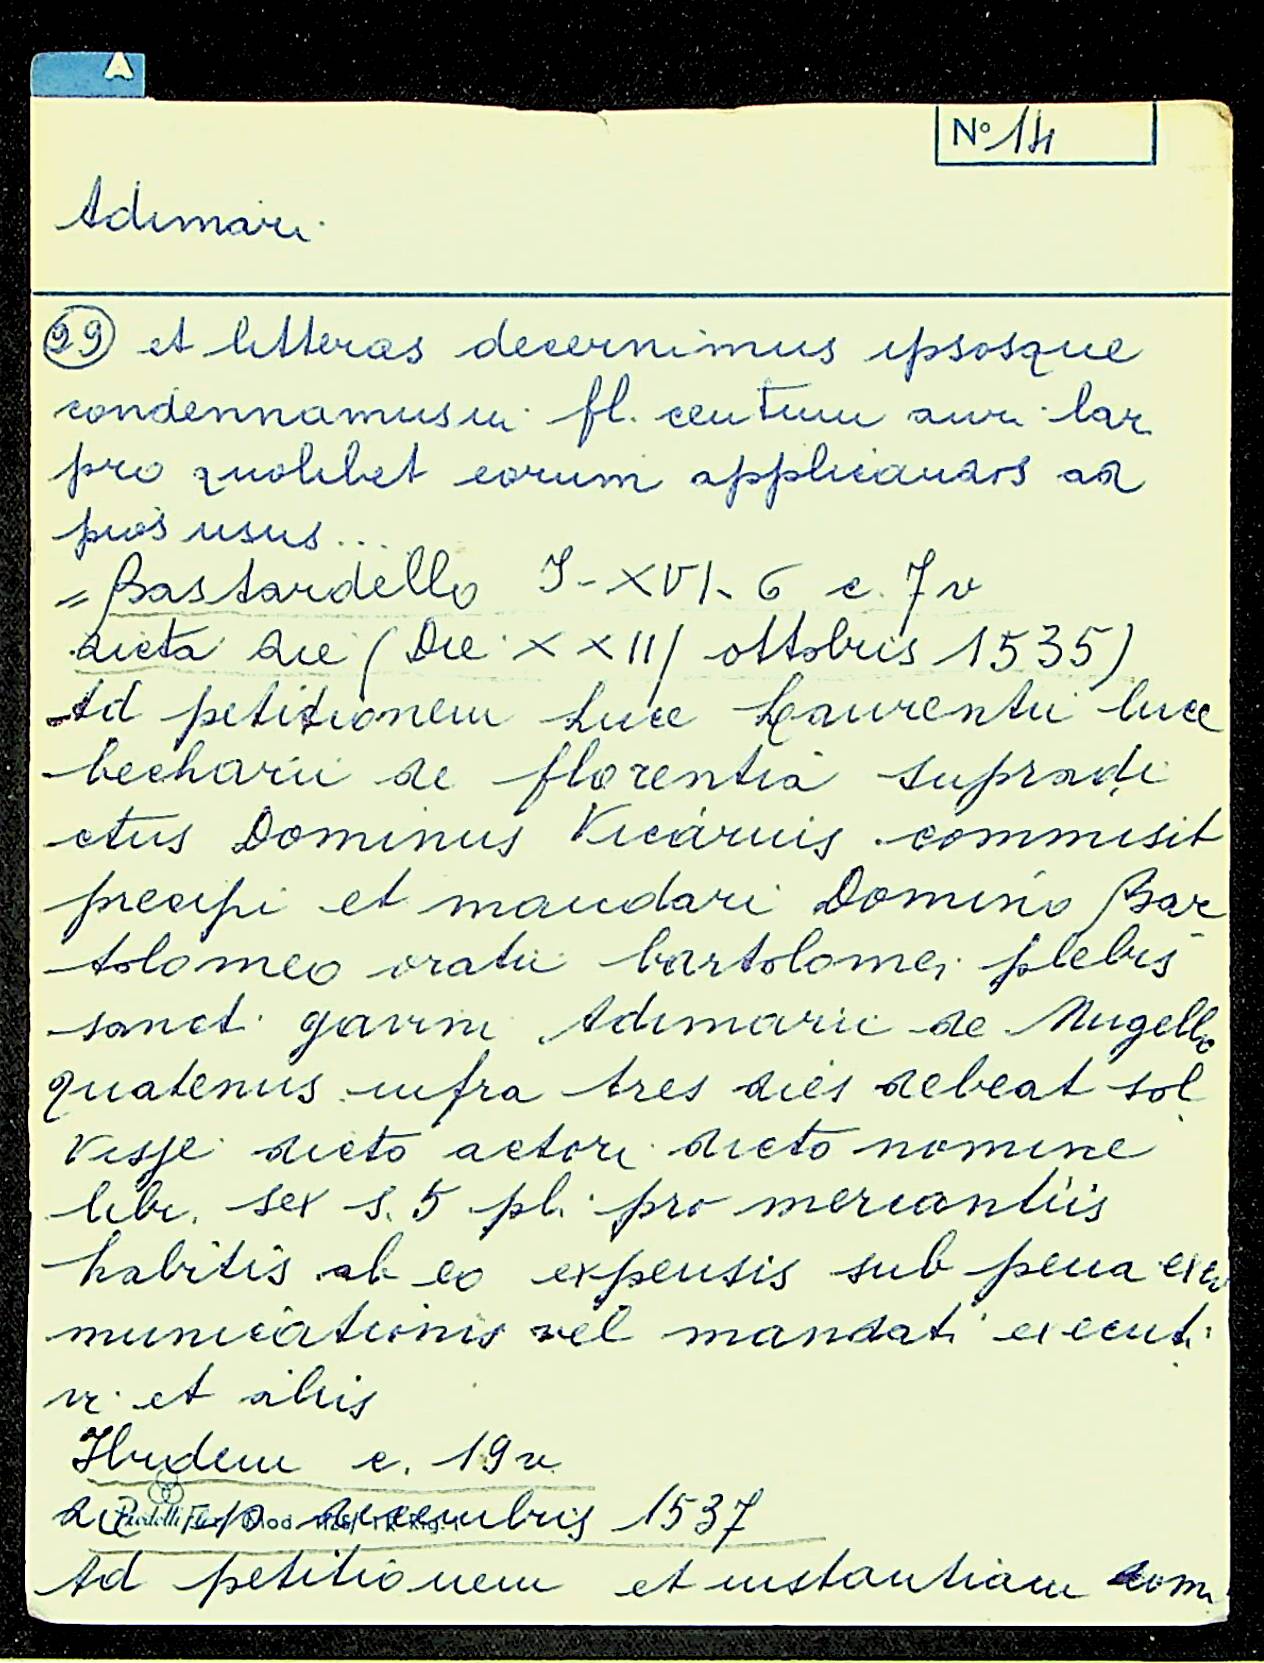 A
N° 14
Adimari
29 et litteras decernimus ipsosque
condennamus in fl. centum auri lar
pro quolibet eorum applicandos ad
pios usus...
= Bastardello I-XVI-6 c. 7v
dicta die (Die XXIII ottobris 1535)
Ad petitionem Luce Laurentii luce
becharii de florentia supradi
ctus Dominus Vicarius commisit
precipi et mandari Domino Bar
tolomeo oratii bartolomei plebis
sancti gavini Adimarii de Mugello
quatenus infra tres dies debeat sol
visse dicto actori dicto nomine
libr. sex s. 5 pl. pro mercantiis
habitis ab eo expensis sub pena exco
municationis vel mandati executi
vi et aliis
Ibidem c. 19v
decembris 1537
Ad petitionem et instantiam dom